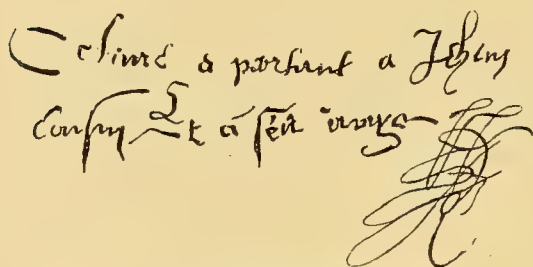 Ce liure a partient a Jehan
Cousin Et a ses amys